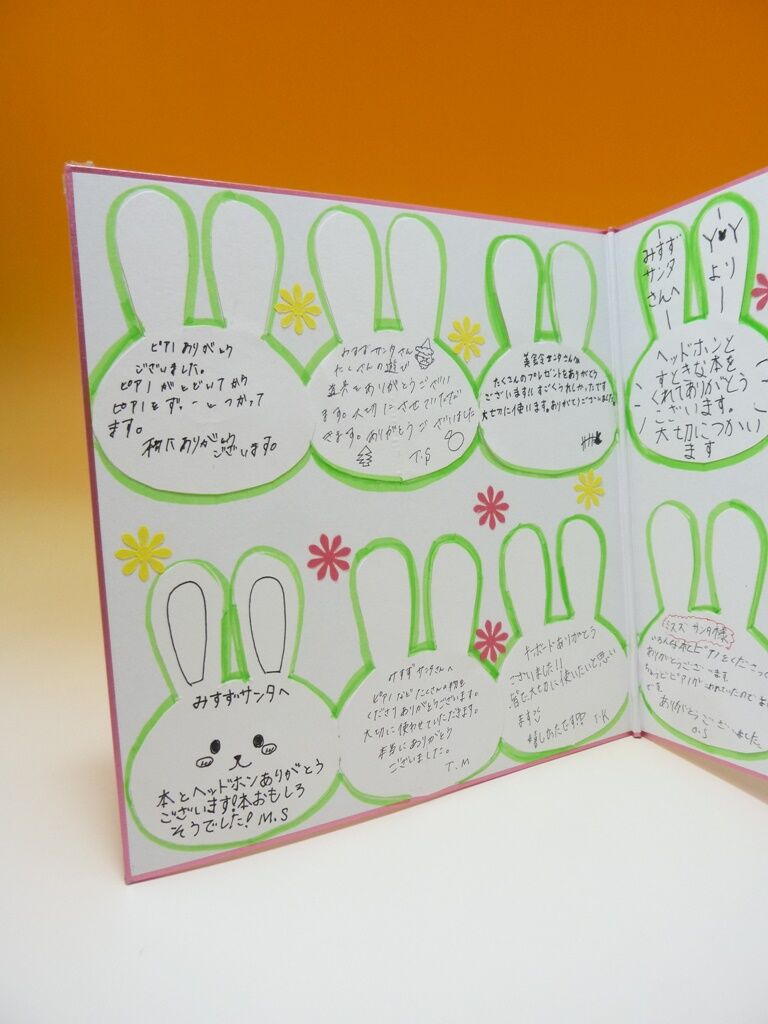 ピアノありがとう
ございました。
ピアノがとどいてから
ピアノをずーっとつかって
ます。
本当にありがとう
ございます。
みすずサンタさん
たくさんの遊び
道具をありがとうござい
ます。大切にさせていただ
きます。ありがとうございました
T.S
サンタさんへ
たくさんのプレゼントをありがとう
ございます!!すごくうれしかったです
大切に使います。ありがとうございました。
みすず
サンタ
さんへ
Y・Y
より
ヘッドホンと
すてきな本を
くれてありがとう
ございます。
大切につかい
ます
みすずサンタへ
本とヘッドホンありがとう
ございます!本おもしろ
そうでした! M.S
みすずサンタさんへ
ピアノなどたくさんの物を
くださりありがとうございます。
大切に使わせていただきます。
本当にありがとう
ございました。
T.M
キーボードありがとう
ございました!!
皆で大切に使いたいと思い
ます
嬉しかったです!! T.K
ミスズ サンタ様
ピアノをくださって
ありがとうございます
ちょうどピアノがこわれていたので
です
ありがとうございました。
O.S